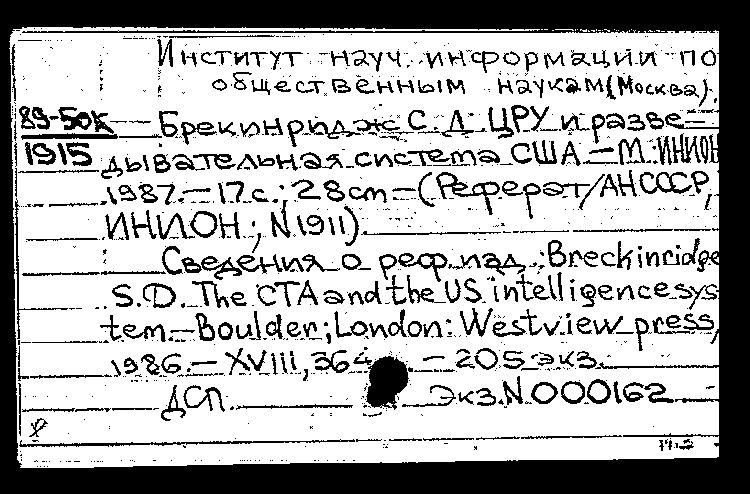 Институт науч. информации по
общественным наукам (Москва).
89-50к
1915
Брекинридж С.Д. ЦРУ и разве-
дывательная система США. – М.: ИНИОН
1987. – 17 с.; 28 cm – (Реферат / АН СССР,
ИНИОН; N 1911).
Сведения о реф. изд.: Breckinridge
S.D. The CTA and the US intelligence sys-
tem. – Boulder; London: Westview press,
1986. – XVIII, 364 – 205 экз.
ДСП. Экз. N 000162